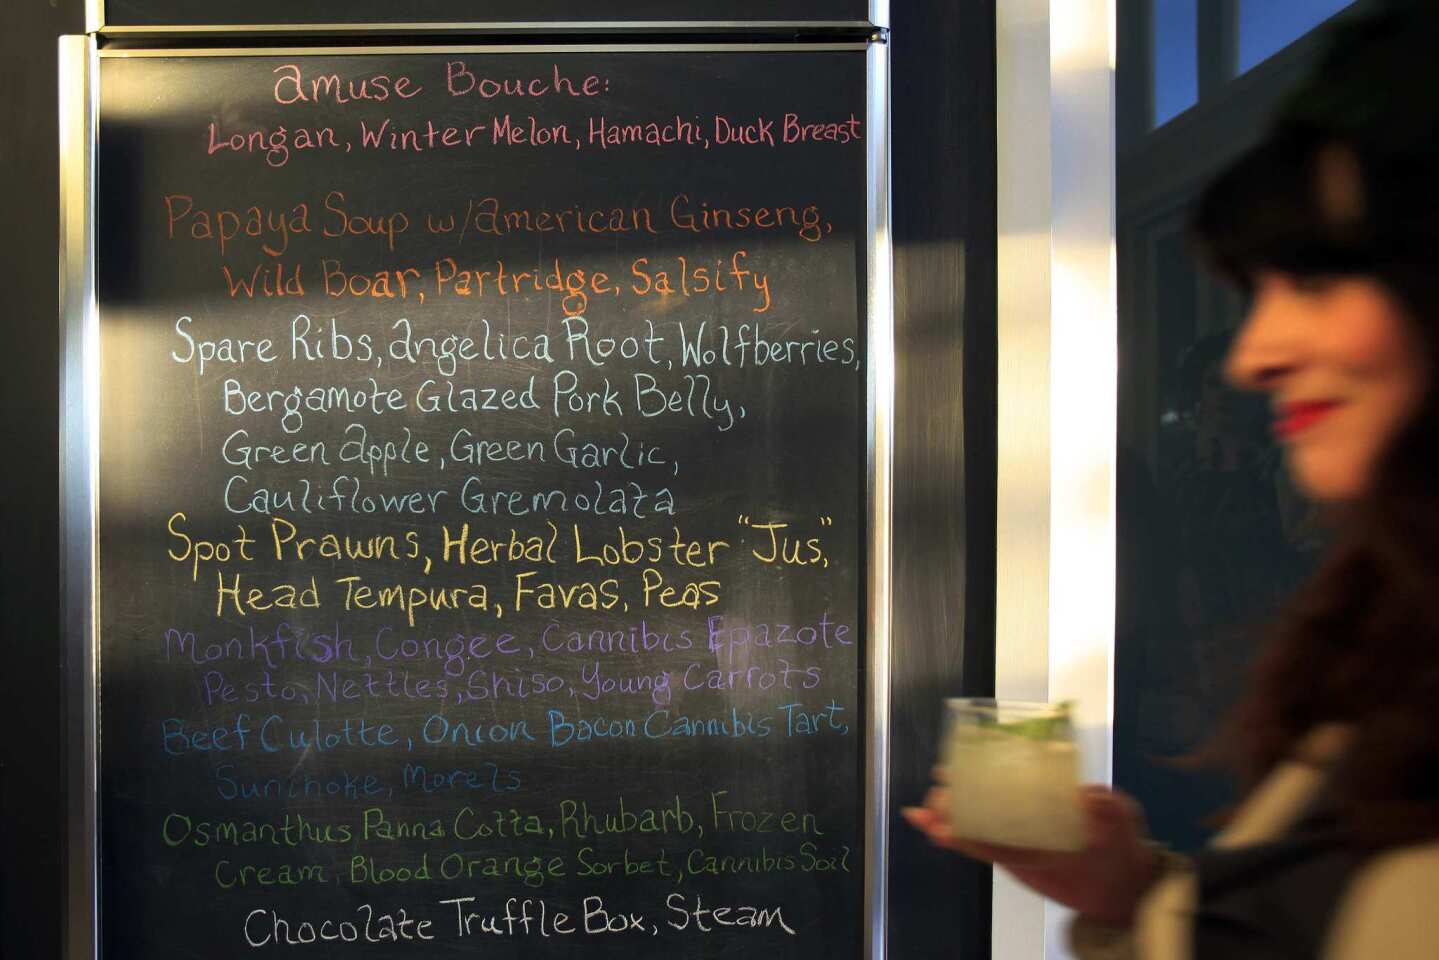 amuse Bouche:
Longan, Winter Melon, Hamachi, Duck Breast
Papaya Soup w/american Ginseng,
Wild Boar, Partridge, Salsify
Spare Ribs, angelica Root, Wolfberries,
Bergamote Glazed Pork Belly,
Green apple, Green Garlic,
Cauliflower Gremolata
Spot Prawns, Herbal Lobster "Jus,"
Head Tempura, Favas, Peas
Monkfish, Congee, Cannibis Epazote
Pesto, Nettles, Shiso, Young Carrots
Beef Culotte, Onion Bacon Cannibis Tart,
Sunchoke, Morels
Osmanthus Panna Cotta, Rhubarb, Frozen
Cream, Blood Orange Sorbet, Cannibis Soil
Chocolate Truffle Box, Steam